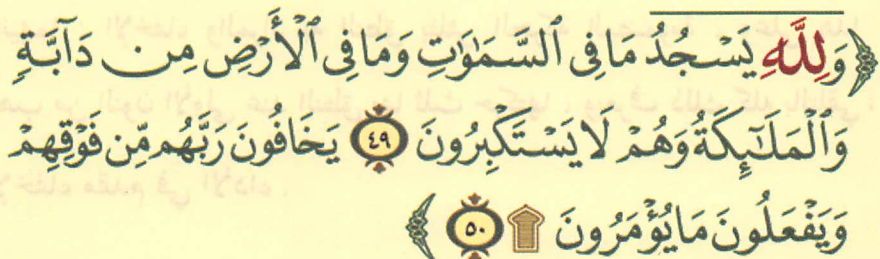 ﴿وَلِلَّهِ يَسْجُدُ مَا فِى ٱلسَّمَـٰوَٰتِ وَمَا فِى ٱلْأَرْضِ مِن دَآبَّةٍ
وَٱلْمَلَـٰٓئِكَةُ وَهُمْ لَا يَسْتَكْبِرُونَ ٤٩ يَخَافُونَ رَبَّهُم مِّن فَوْقِهِمْ
وَيَفْعَلُونَ مَا يُؤْمَرُونَ ۩ ٥٠ ﴾